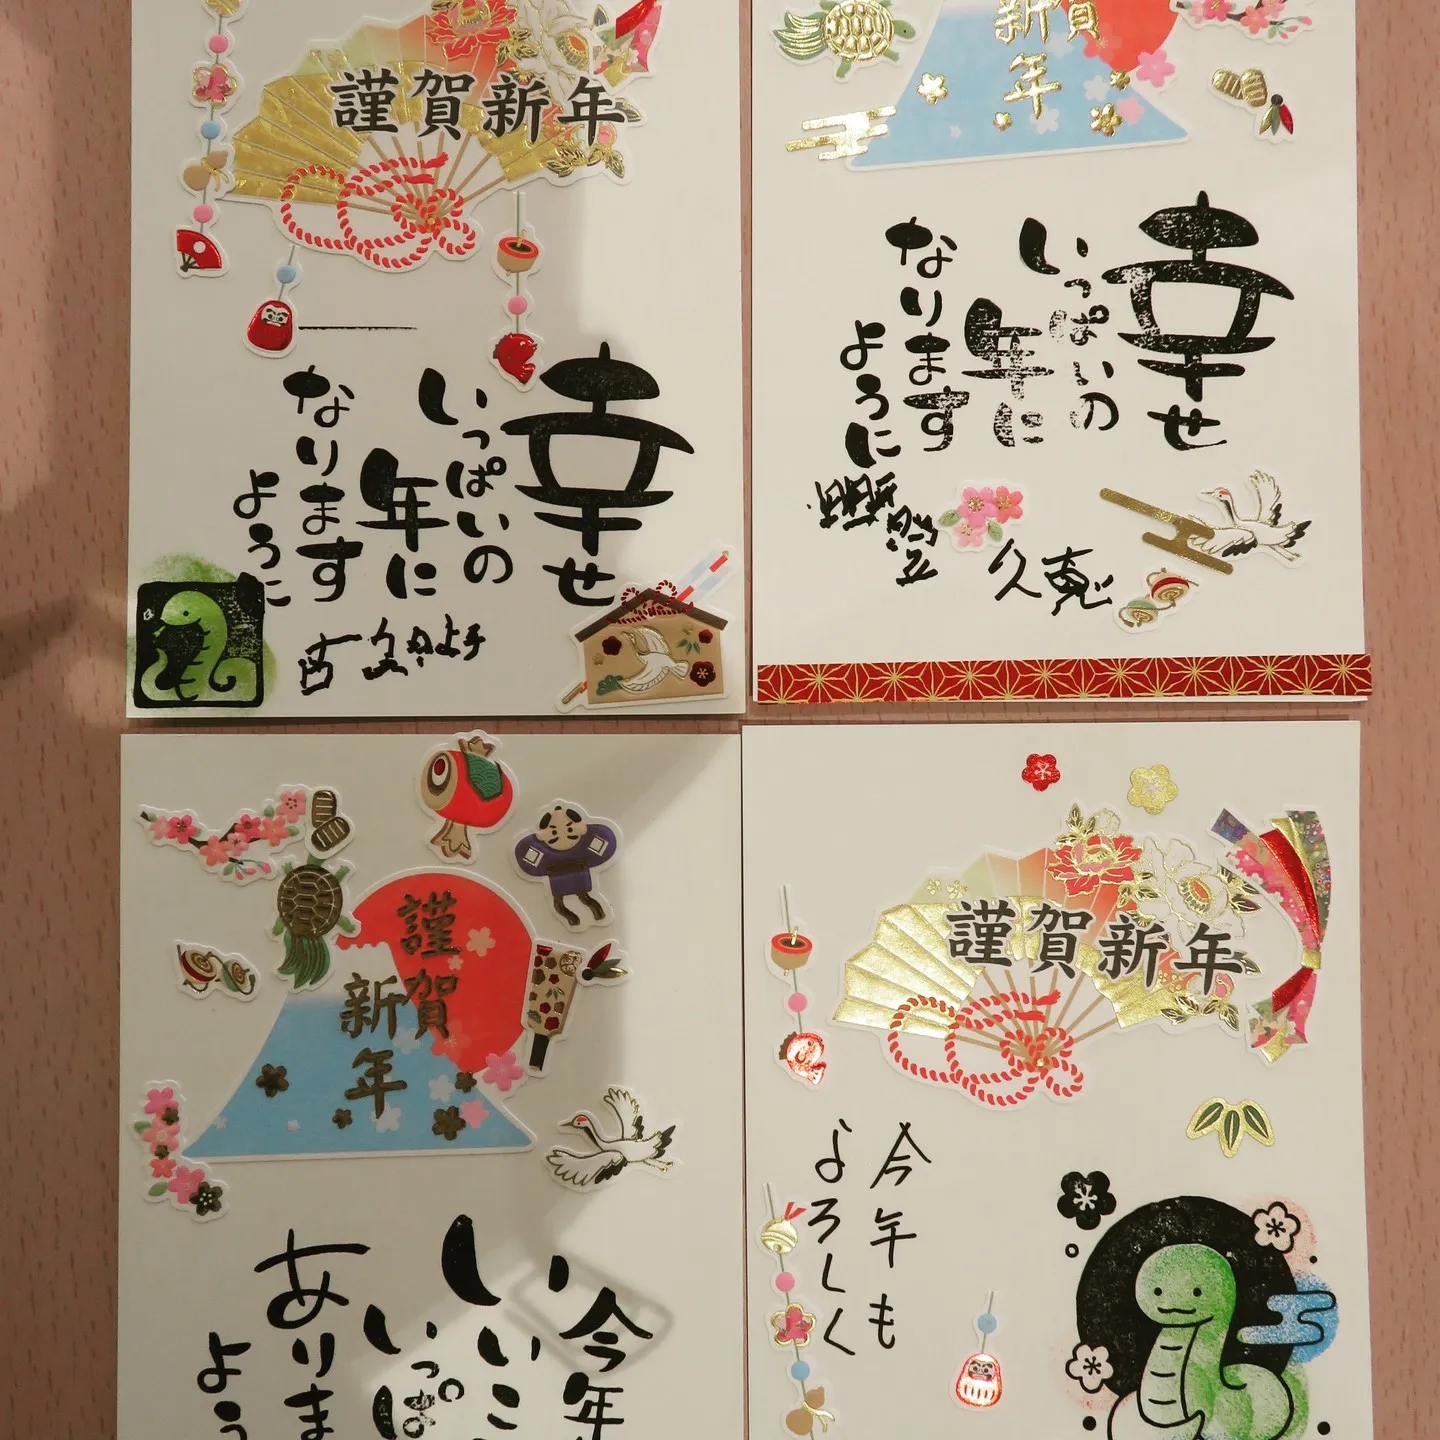 謹賀新年
幸せ
いっぱいの
年に
なります
ように
新賀
年
幸せ
いっぱいの
年に
なります
ように
謹
賀
新
年
今年
いいこ
いっぱ
ありま
よう
謹賀新年
今年も
よろしく